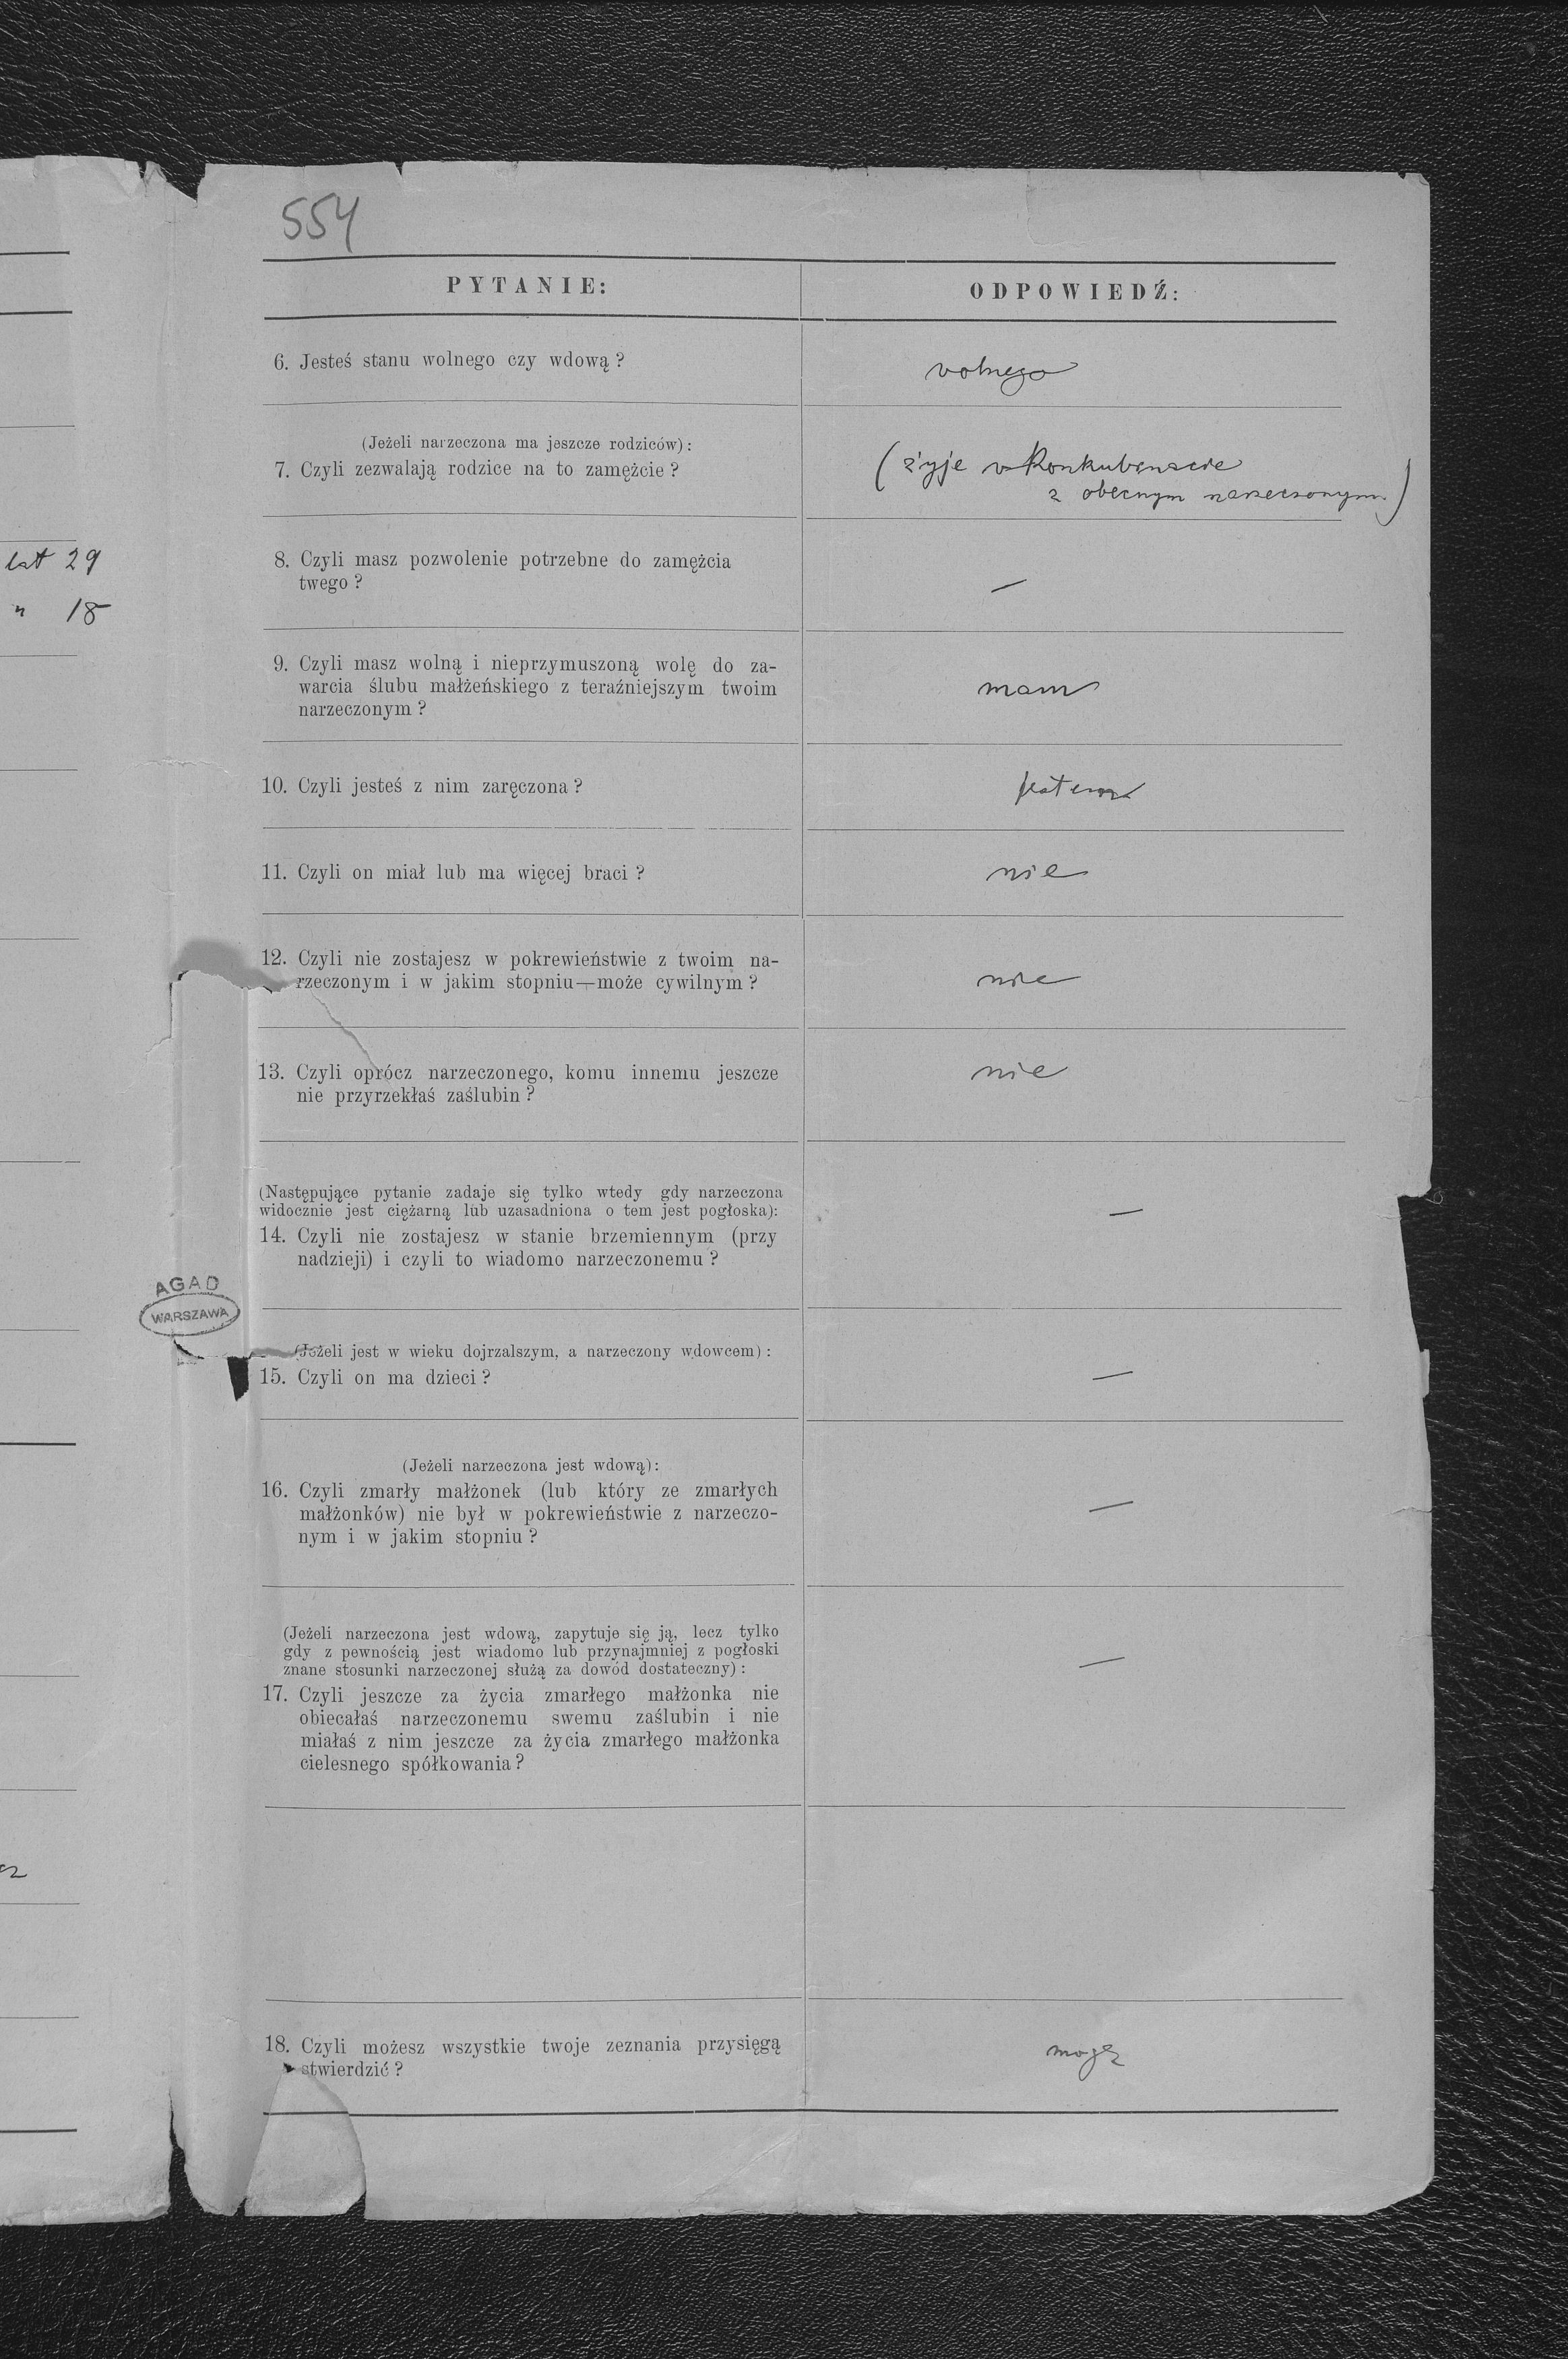 554
PYTANIE:
ODPOWIEDŹ:
6. Jesteś stanu wolnego czy wdową ?
wolnego
(Jeżeli narzeczona ma jeszcze rodziców) :
7. Czyli zezwalają rodzice na to zamężcie ?
(żyje w konkubinacie
z obecnym narzeczonym)
lat 29
" 18
8. Czyli masz pozwolenie potrzebne do zamężcia
twego ?
—
9. Czyli masz wolną i nieprzymuszoną wolę do za-
warcia ślubu małżeńskiego z teraźniejszym twoim
narzeczonym ?
mam
10. Czyli jesteś z nim zaręczona ?
jestem
11. Czyli on miał lub ma więcej braci ?
nie
12. Czyli nie zostajesz w pokrewieństwie z twoim na-
rzeczonym i w jakim stopniu—może cywilnym ?
nie
13. Czyli oprócz narzeczonego, komu innemu jeszcze
nie przyrzekłaś zaślubin ?
nie
(Następujące pytanie zadaje się tylko wtedy gdy narzeczona
widocznie jest ciężarną lub uzasadniona o tem jest pogłoska):
14. Czyli nie zostajesz w stanie brzemiennym (przy
nadzieji) i czyli to wiadomo narzeczonemu ?
—
AGAD
WARSZAWA
(Jeżeli jest w wieku dojrzalszym, a narzeczony wdowcem) :
15. Czyli on ma dzieci ?
—
(Jeżeli narzeczona jest wdową) :
16. Czyli zmarły małżonek (lub który ze zmarłych
małżonków) nie był w pokrewieństwie z narzeczo-
nym i w jakim stopniu ?
—
(Jeżeli narzeczona jest wdową, zapytuje się ją, lecz tylko
gdy z pewnością jest wiadomo lub przynajmniej z pogłoski
znane stosunki narzeczonej służą za dowód dostateczny) :
17. Czyli jeszcze za życia zmarłego małżonka nie
obiecałaś narzeczonemu swemu zaślubin i nie
miałaś z nim jeszcze za życia zmarłego małżonka
cielesnego spółkowania ?
—
18. Czyli możesz wszystkie twoje zeznania przysięgą
stwierdzić ?
mogę